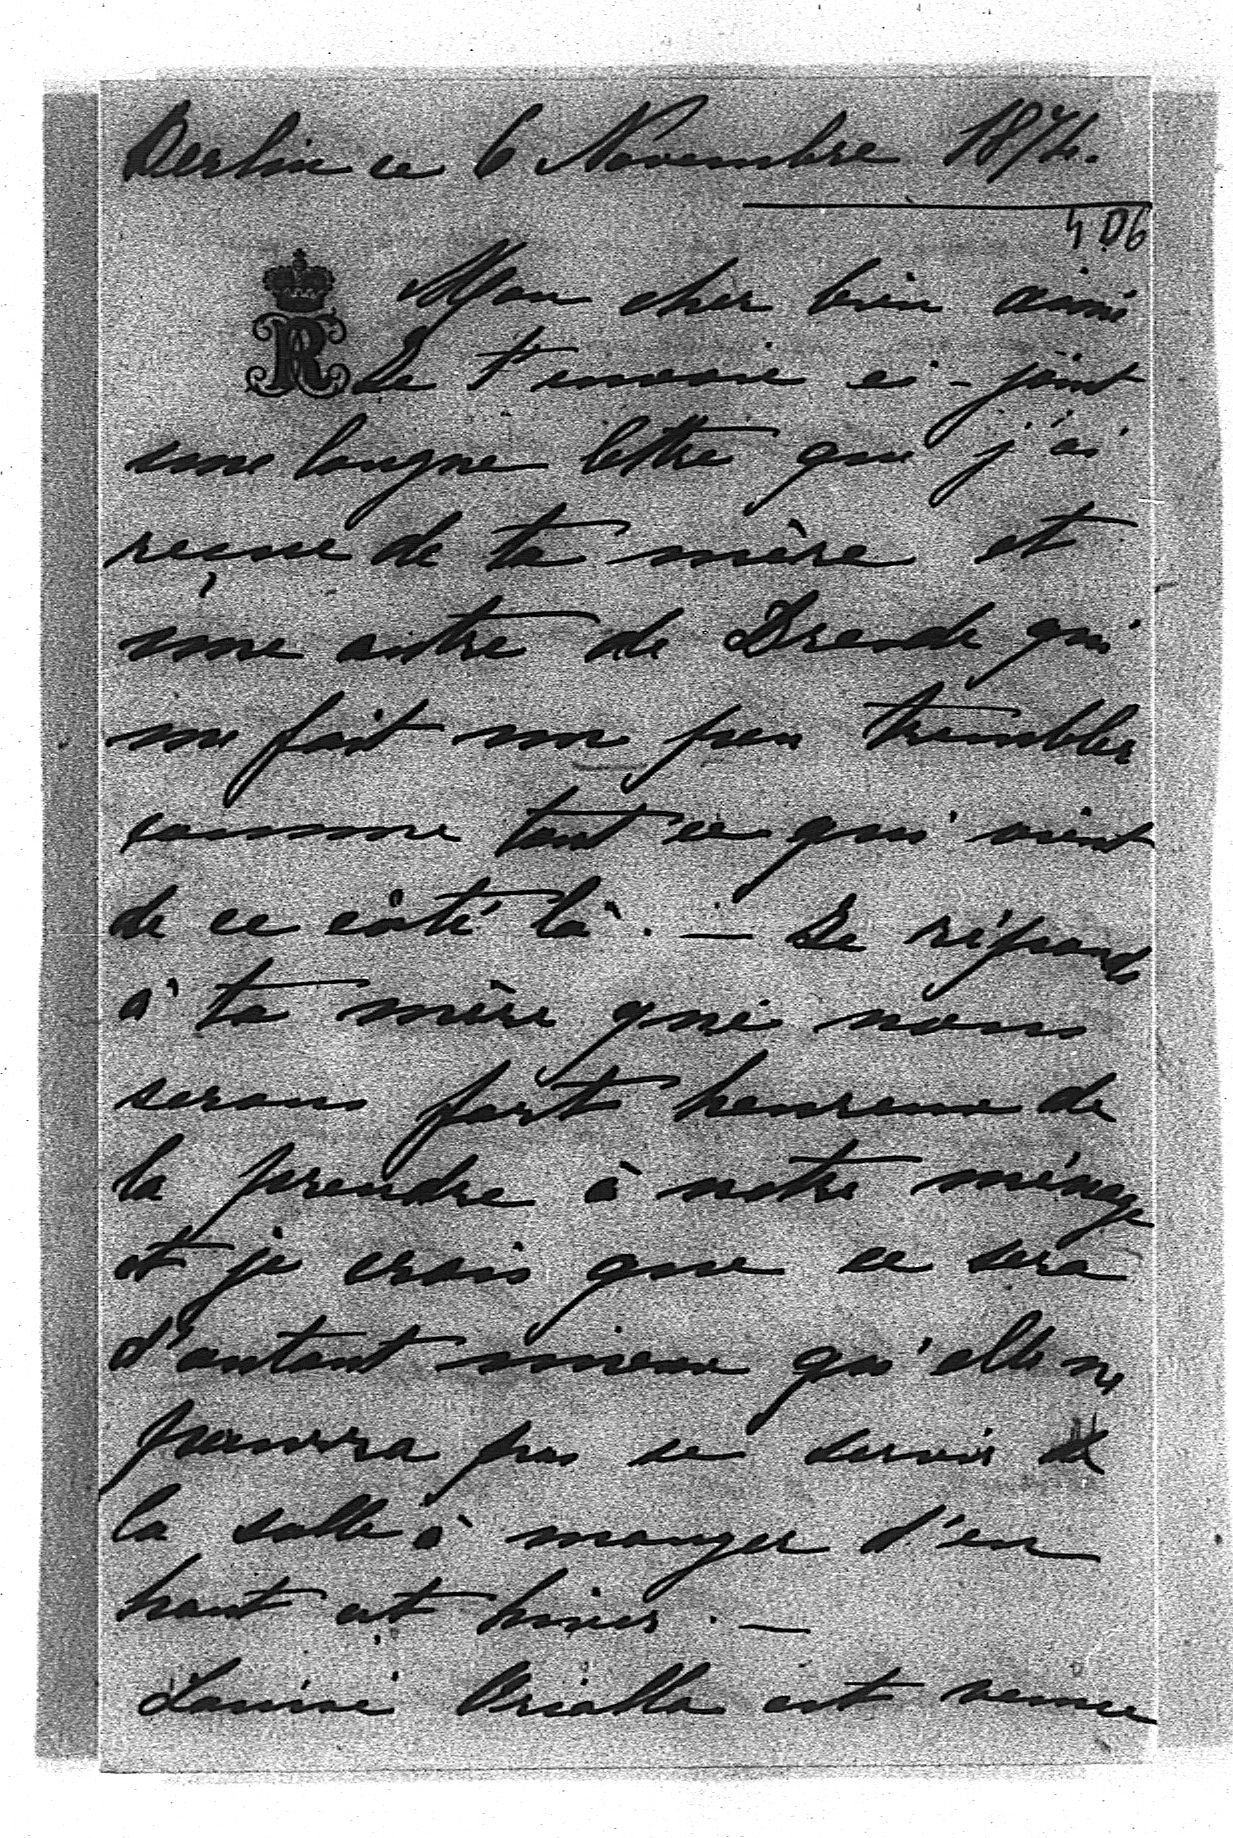 Berlin ce 6 Novembre 1874.
406
Mon cher bien aimé
R Je t'envoie ci-joint
une longue lettre que j'ai
reçue de ta mère et
une autre de qui
me fait un peu trembler
comme tout ce qui vient
de ce côté là. — Je réponds
à ta mère que nous
serons fort heureux de
la prendre à notre ménage
et je crois que ce sera
d'autant mieux qu'elle ne
pourra pas se servir de
la salle à manger d'en
haut cet hiver. —
Louise Oriolla est venue